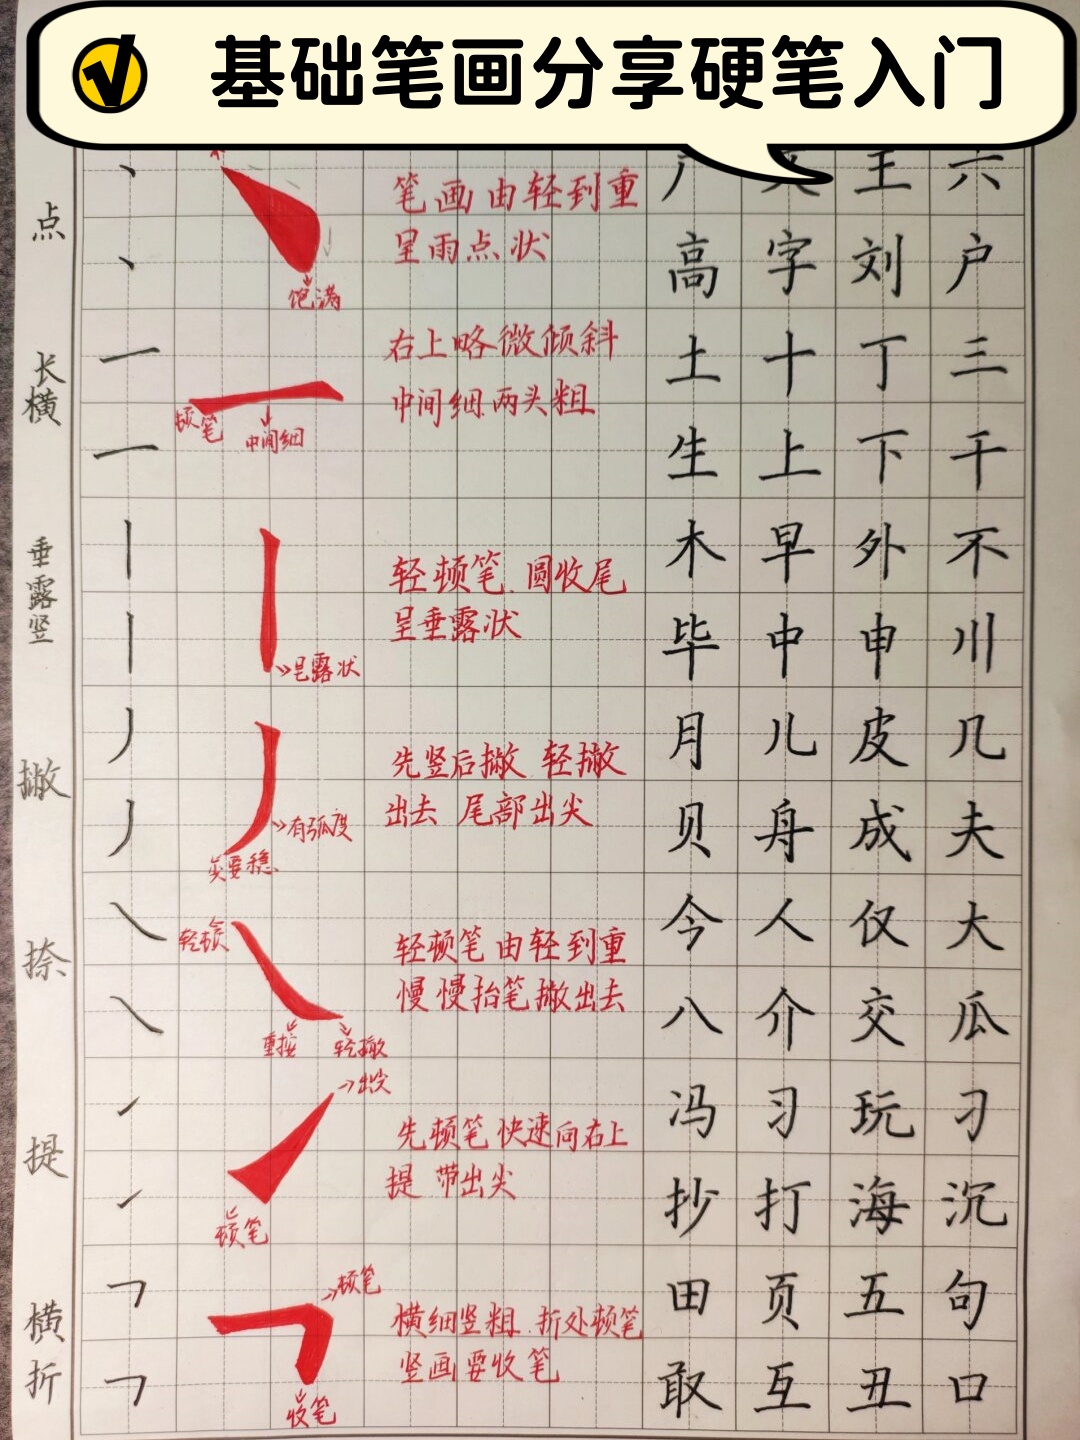 基础笔画分享硬笔入门
点
笔画由轻到重
呈雨点状
饱满
王 六
高 字 刘 户
长横
右上略微倾斜
中间细 两头粗
顿笔
中间细
土 十 丁 三
生 上 下 千
垂露竖
轻顿笔 圆收尾
呈垂露状
呈露状
木 早 外 不
毕 中 申 川
撇
先竖后撇 轻撇
出去 尾部出尖
有弧度
尖要稳
月 儿 皮 几
贝 舟 成 夫
捺
轻顿
轻顿笔 由轻到重
慢慢抬笔撇出去
重按
轻撇
今 人 仅 大
八 介 交 瓜
提
出尖
先顿笔 快速向右上
提 带出尖
顿笔
冯 习 玩 刁
抄 打 海 沉
横折
顿笔
横细竖粗 折处顿笔
竖画要收笔
收笔
田 页 五 句
敢 互 丑 口